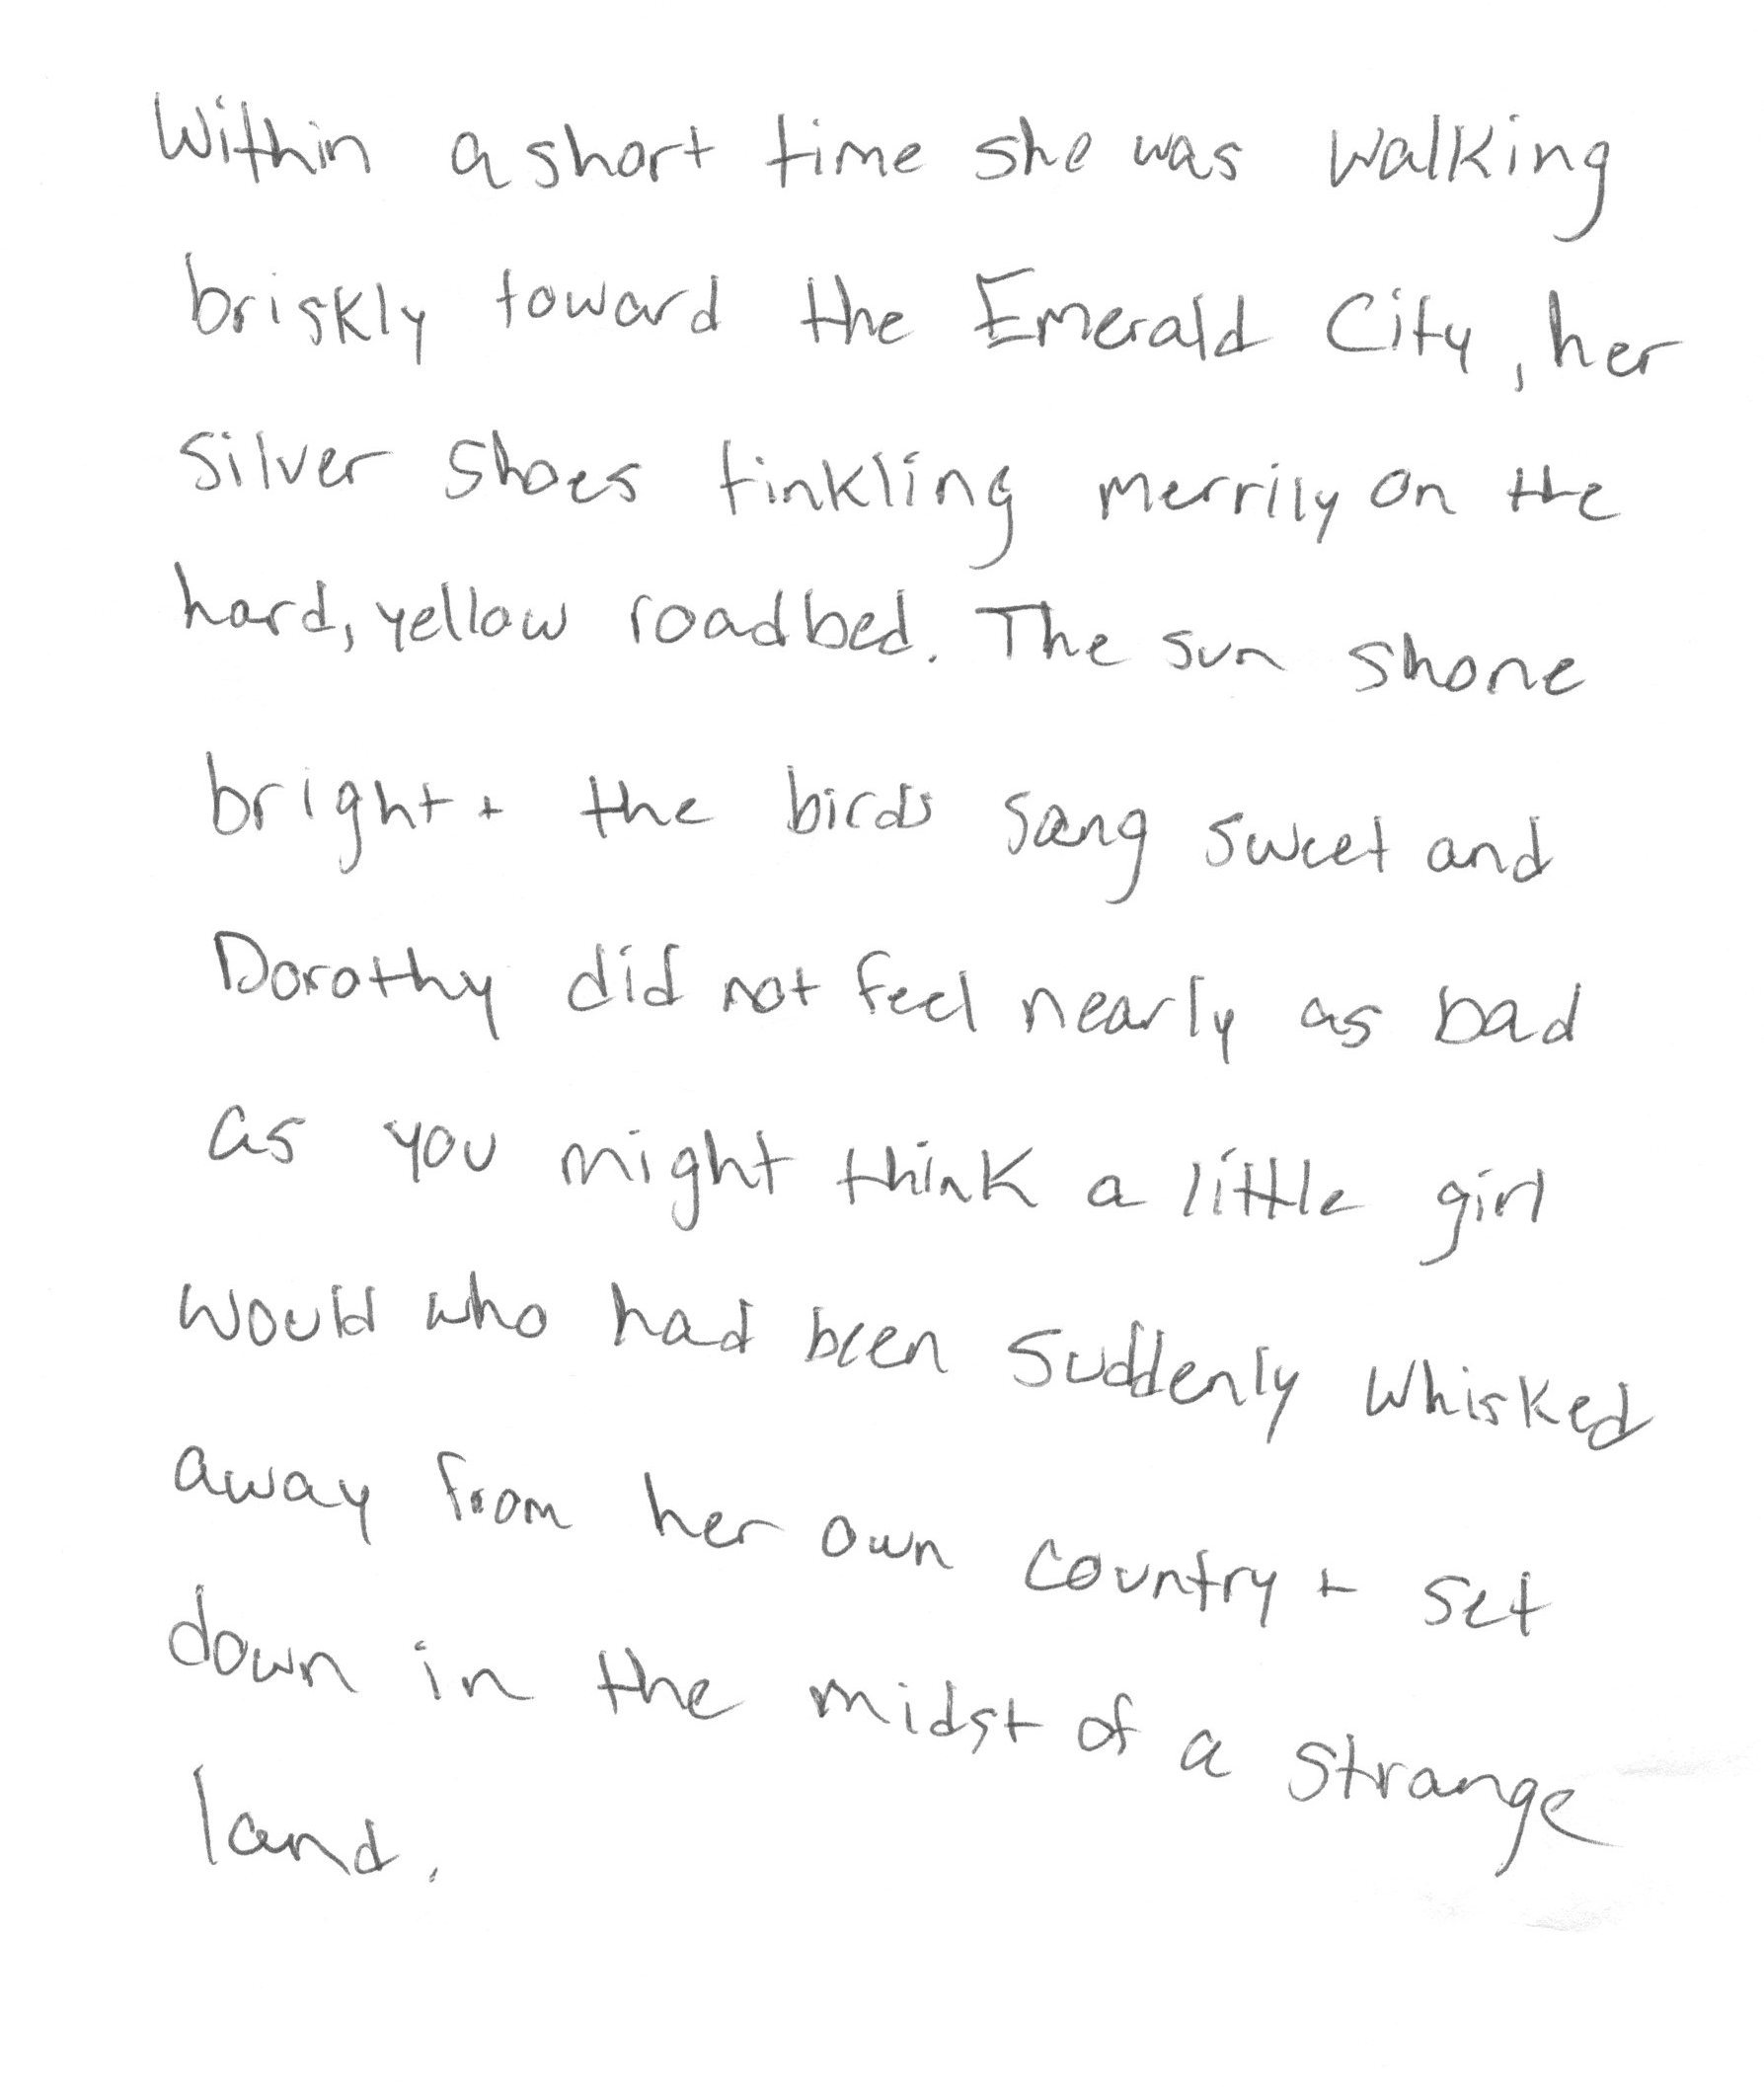 Within a short time she was walking
briskly toward the Emerald City, her
Silver Shoes tinkling merrily on the
hard, yellow roadbed. The sun shone
bright + the birds sang sweet and
Dorothy did not feel nearly as bad
as you might think a little girl
would who had been suddenly whisked
away from her own country + set
down in the midst of a strange
land.